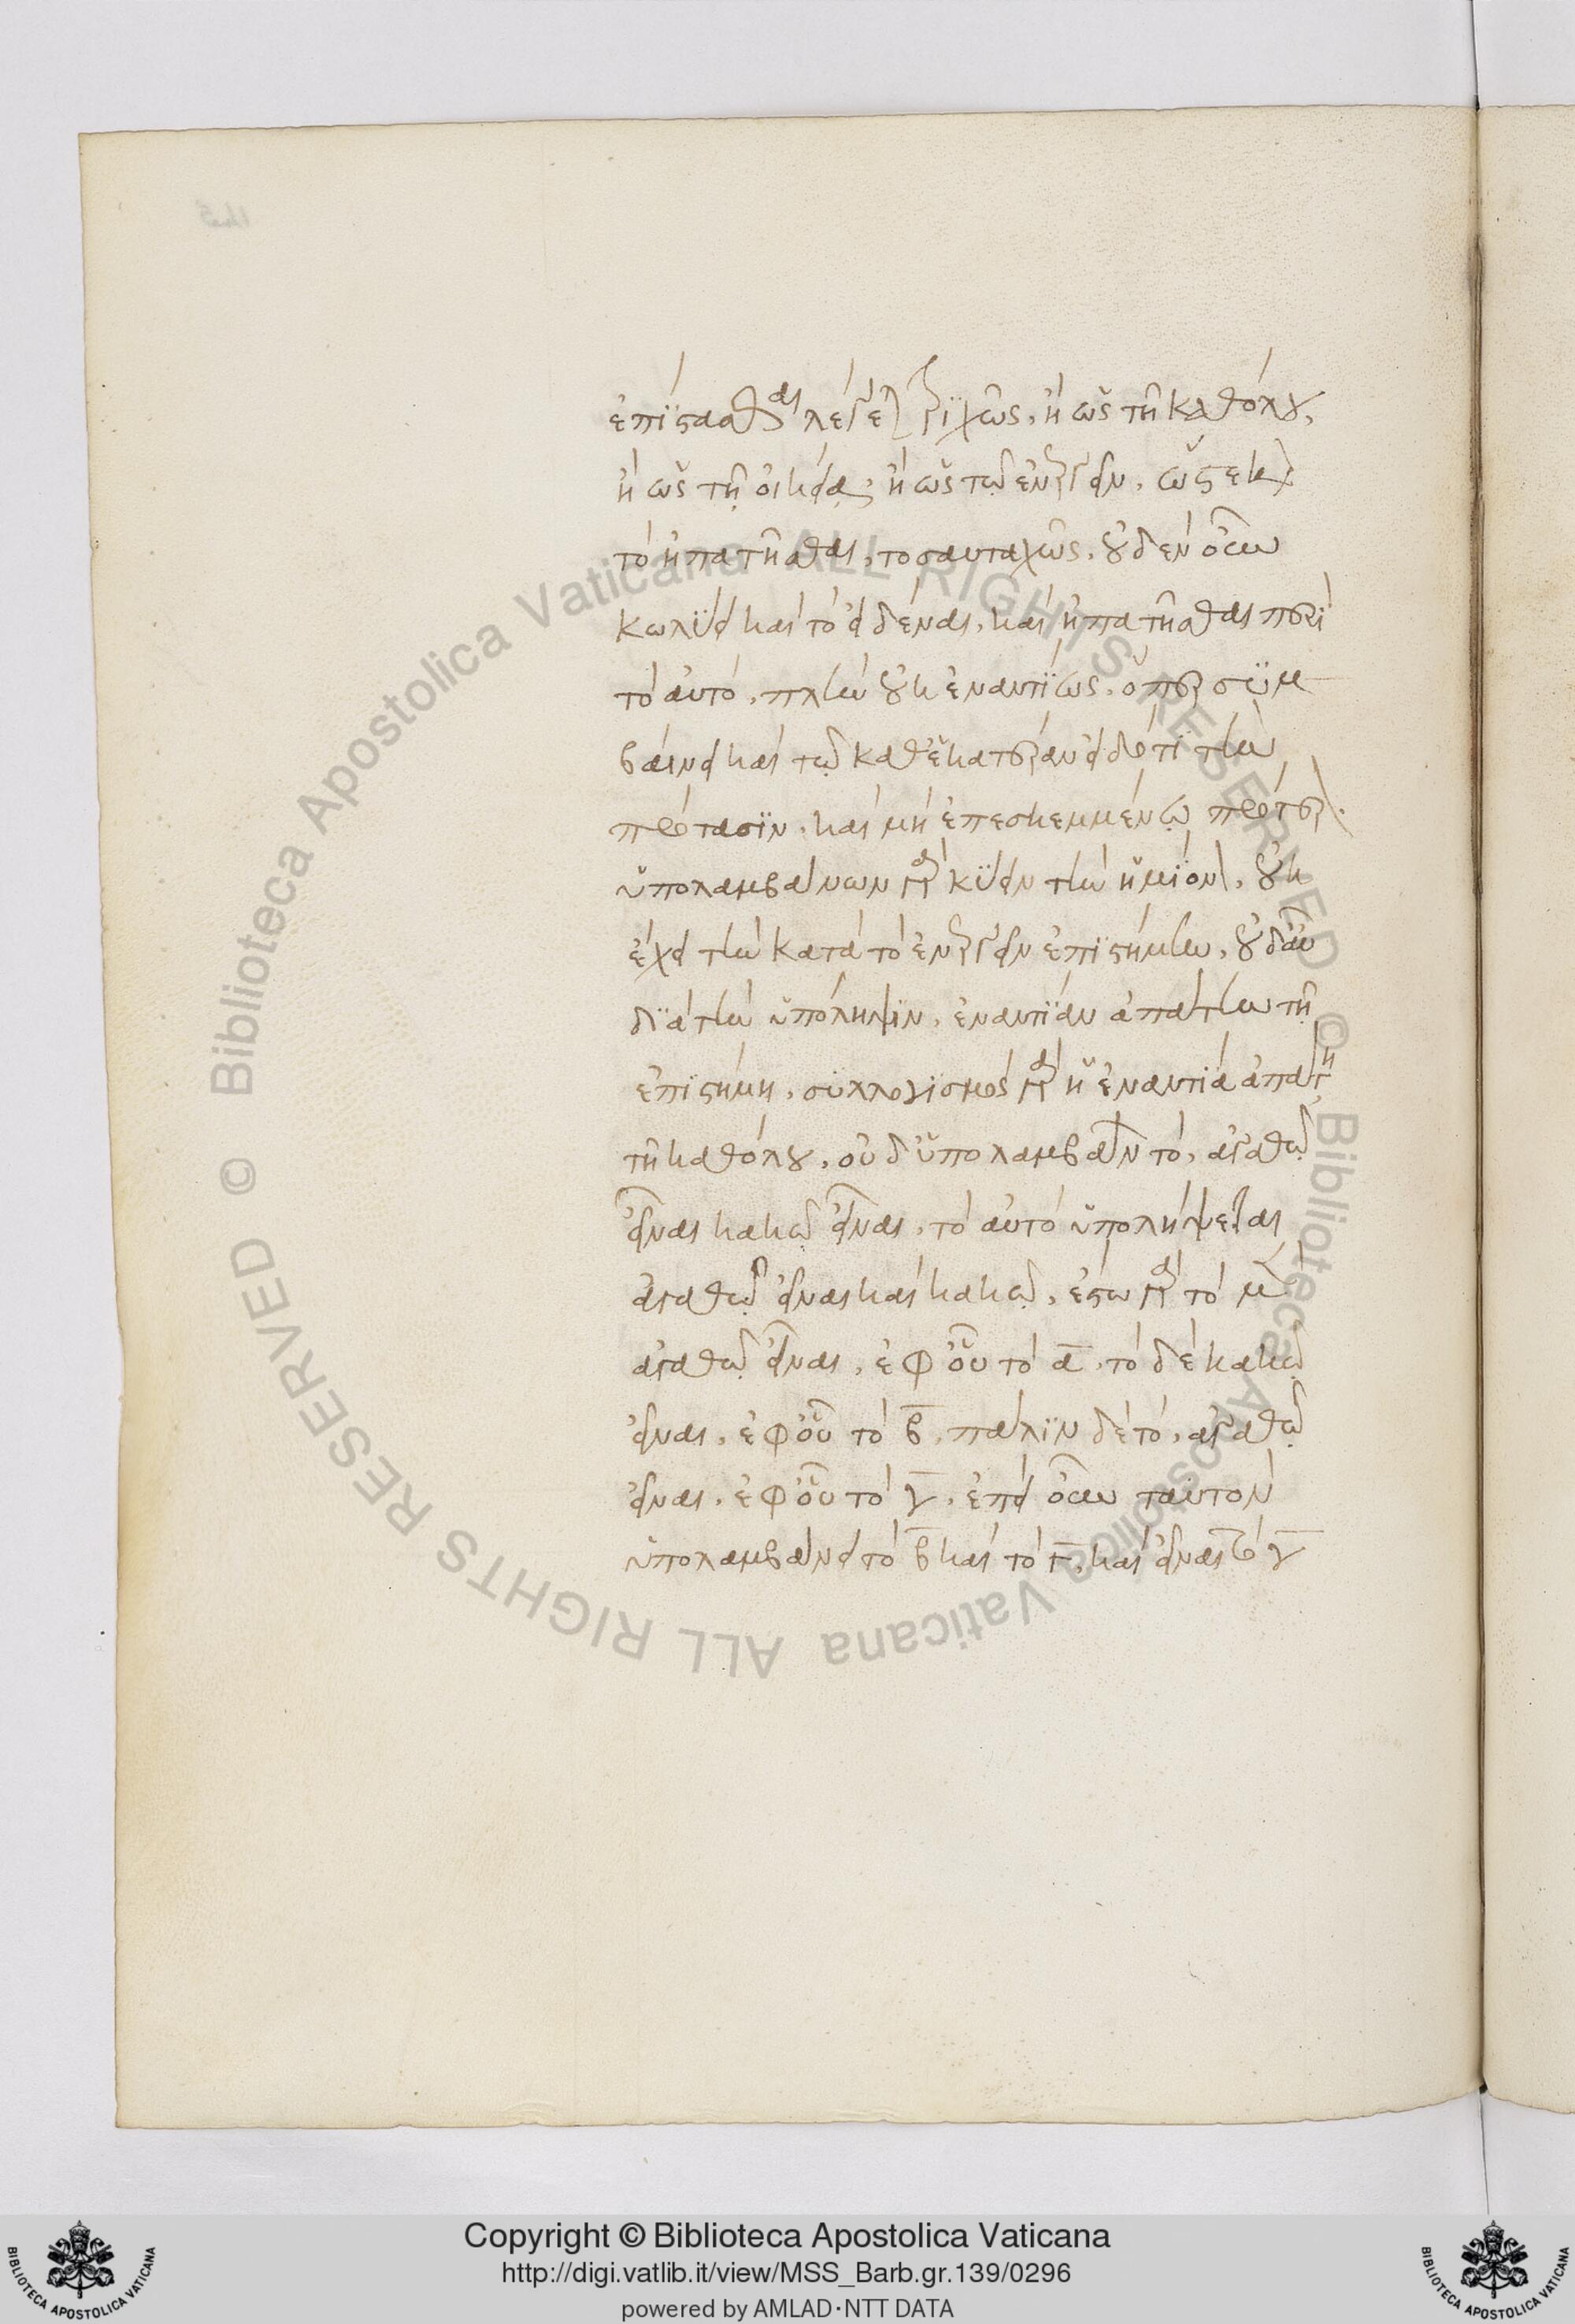 ἐπίστασθαι λέγεται τριχῶς, ἢ ὡς τῆ καθόλου,
ἢ ὡς τῆ οἰκεία, ἢ ὡς τῶ ἐνεργεῖν, ὥστε καὶ
τὸ ἠπατῆσθαι, τοσαυταχῶς. οὐδὲν οὖν
κωλύει καὶ τὸ εἰδέναι, καὶ ἠπατῆσθαι περὶ
τὸ αὐτό, πλὴν οὐκ ἐναντίως. ὅπερ συμ
βαίνει καὶ τῶ καθ' ἑκατέραν εἰδότι τὴν
πρότασιν, καὶ μὴ ἐπεσκεμμένω πρότερον.
ὑπολαμβάνων γὰρ κύειν τὴν ἡμίονον, οὐκ
ἔχει τὴν κατὰ τὸ ἐνεργεῖν ἐπιστήμην, οὐδ' αὖ
διὰ τὴν ὑπόληψιν, ἐναντίαν ἀπάτην τῆ
ἐπιστήμη, συλλογισμὸς γὰρ ἡ ἐναντία ἀπάτη
τῆ καθόλου, ὁ δ' ὑπολαμβάνων τό, ἀγαθῶ
εἶναι κακῶ εἶναι, τὸ αὐτὸ ὑπολήψεται
ἀγαθῶ εἶναι καὶ κακῶ, ἔστω γὰρ τὸ μὲν
ἀγαθῶ εἶναι, ἐφ' οὗ τὸ α, τὸ δὲ κακῶ
εἶναι, ἐφ' οὗ τὸ β, πάλιν δὲ τό, ἀγαθῶ
εἶναι, ἐφ' οὗ τὸ γ, ἐπεὶ οὖν ταὐτὸν
ὑπολαμβάνει τὸ β καὶ τὸ γ, καὶ εἶναι τὸ γ
© Biblioteca Apostolica Vaticana ALL RIGHTS RESERVED © Biblioteca Apostolica Vaticana ALL RIGHTS RESERVED
Copyright © Biblioteca Apostolica Vaticana
http://digi.vatlib.it/view/MSS_Barb.gr.139/0296
powered by AMLAD·NTT DATA
BIBLIOTECA APOSTOLICA VATICANA
BIBLIOTECA APOSTOLICA VATICANA